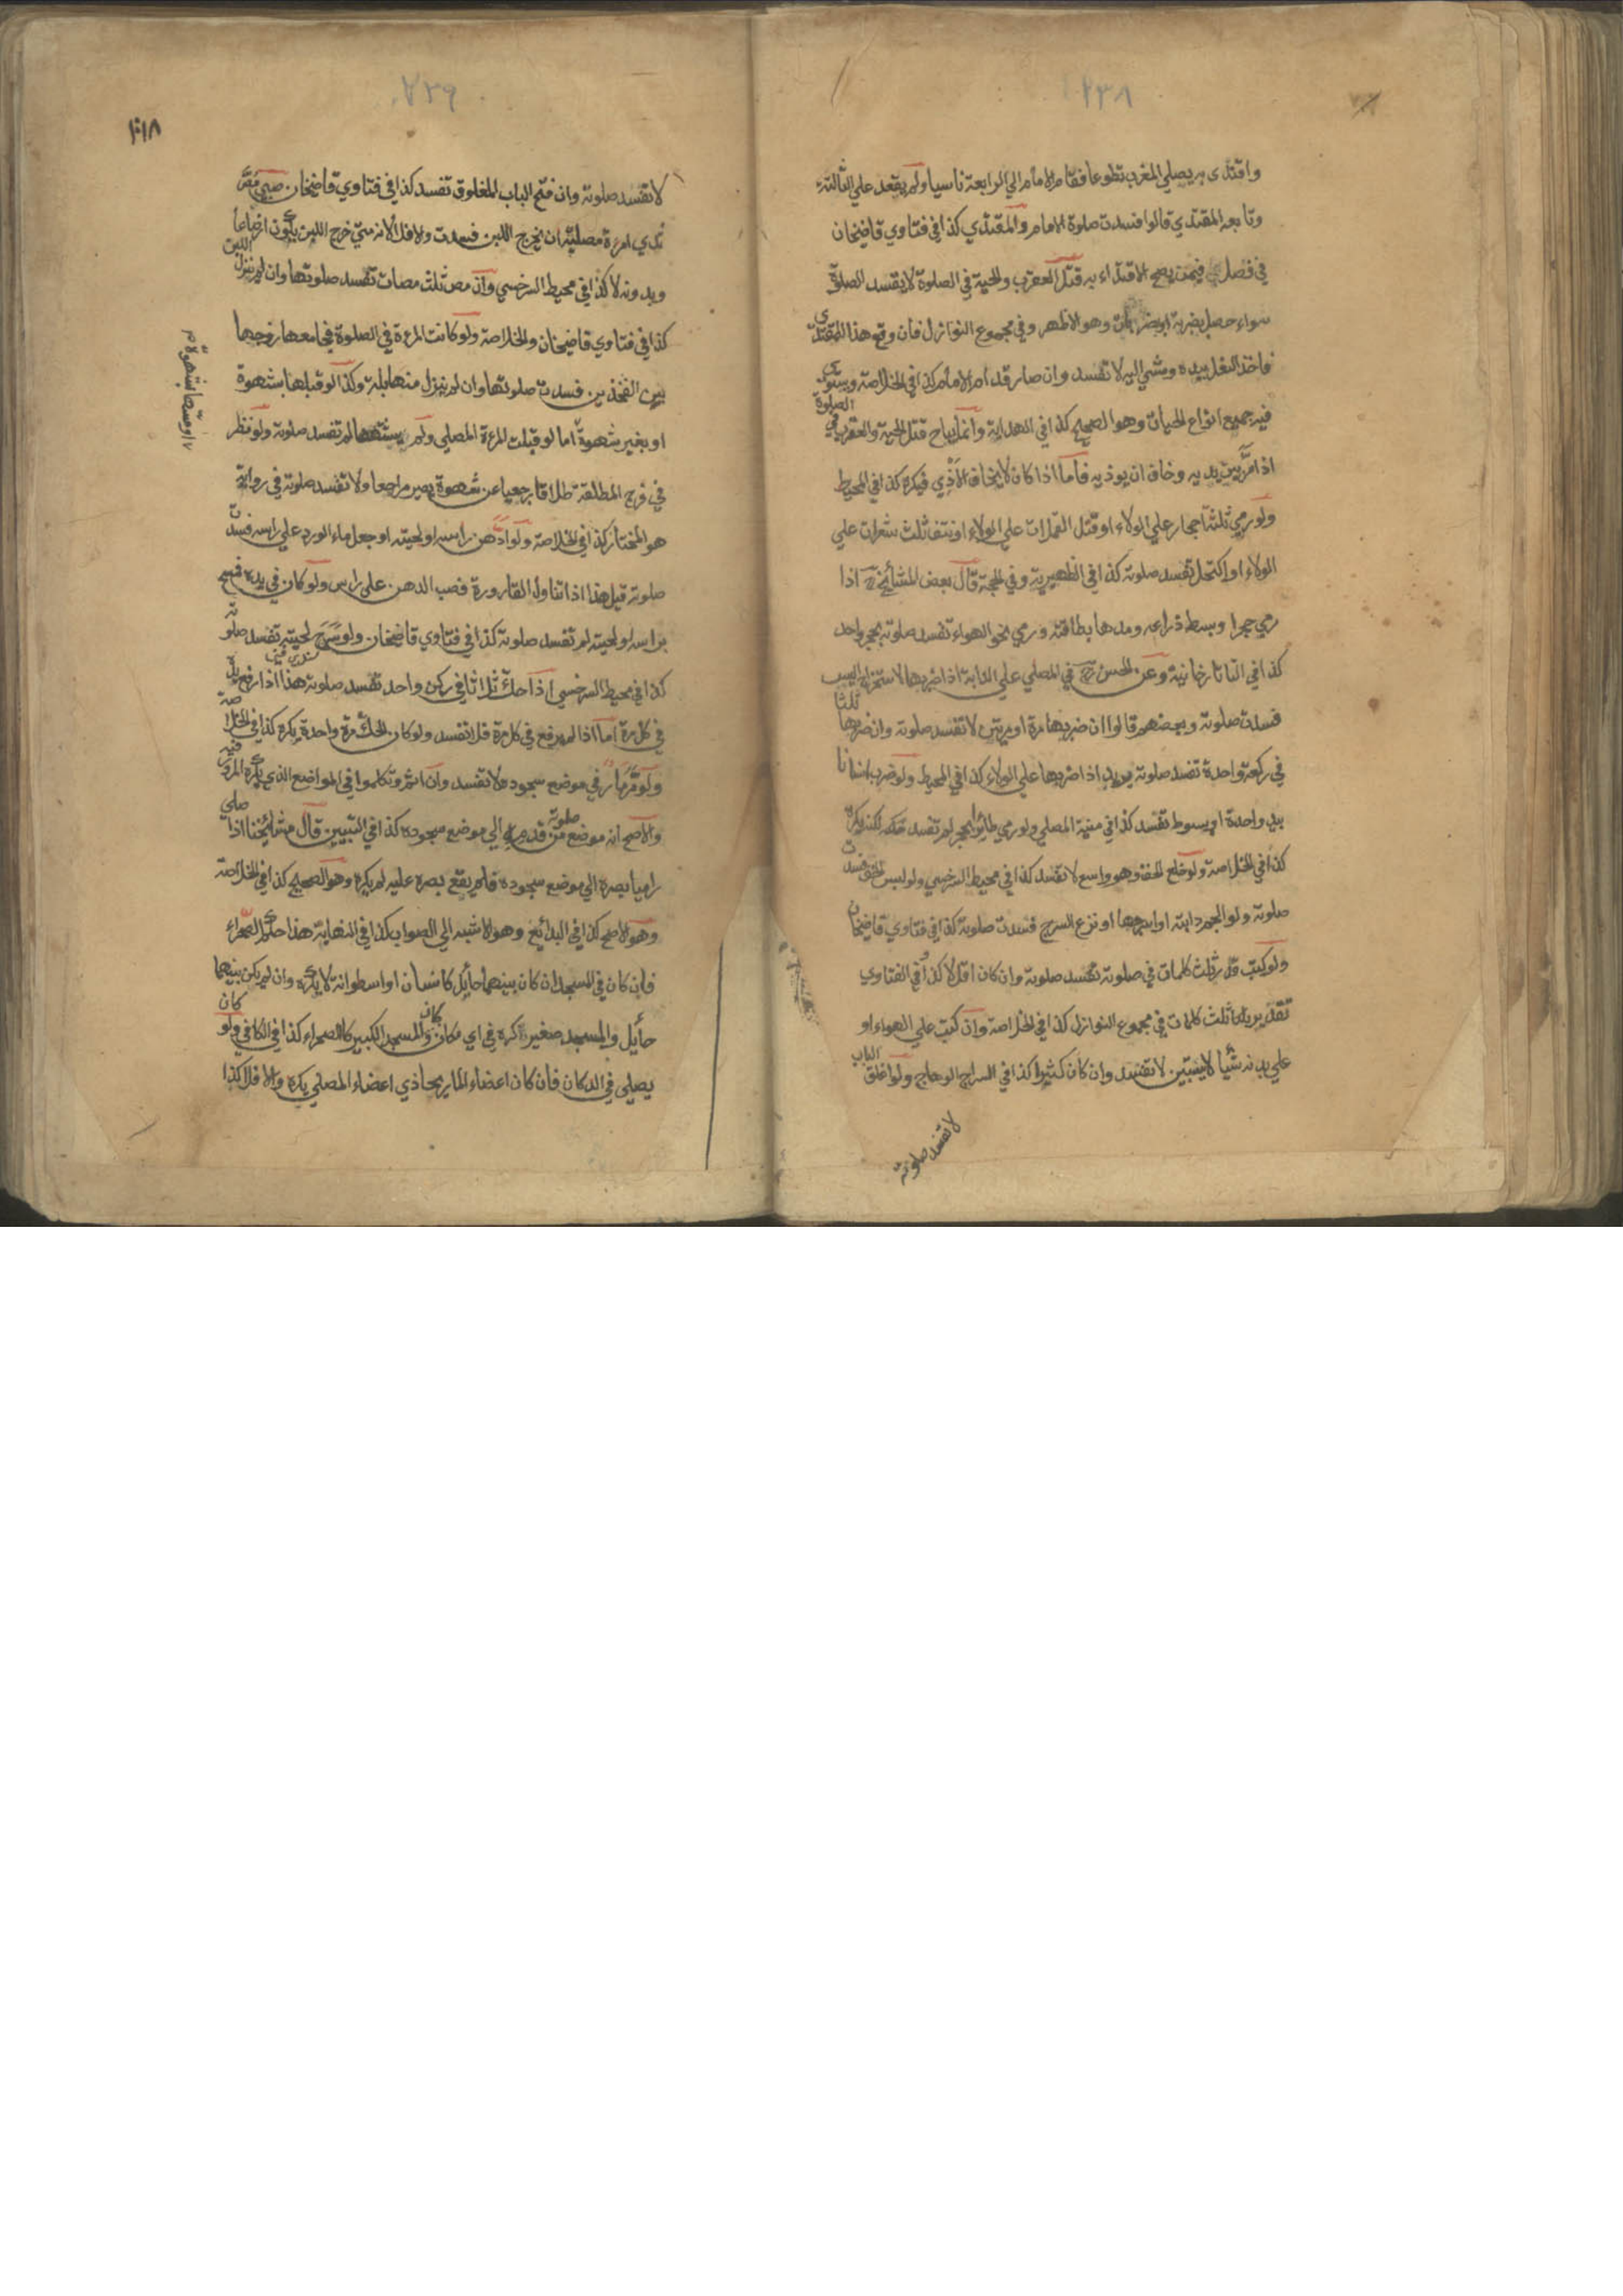 ٢٣٨
واقتدى به يصلي المغرب تطوعا فقام الامام الي الرابعة ناسيا ولم يقعد علي الثالثة
وتابعه المقتدي قالوا فسدت صلوة الامام والمقتدي كذا في فتاوي قاضيخان
في فصل فيمن يصح الاقتداء به قتل العقرب والحية في الصلوة لا يفسد الصلوة
سواء حصل بضربة او بضربات وهو الاظهر وفي مجموع النوازل فان وقع هذا للمقتدي
فاخذ النعل بيده ومشي اليه لا تفسد وان صار قدام الامام كذا في الخلاصة ويستوي
فيه جميع انواع الحيات وهو الصحيح كذا في الهداية وانما يباح قتل الحية والعقرب في الصلوة
اذا مر بين يديه وخاف ان يوذيه فاما اذا كان لا يخاف الاذي فيكره كذا في المحيط
ولو رمي ثلثة احجار علي الولاء او قتل القملات علي الولاء او نتف ثلث شعرات علي
الولاء او اكتحل تفسد صلوته كذا في الظهيرية وفي الحجة قال بعض المشائخ رح اذا
رمي حجرا وبسط ذراعه ومدها بطاقته ورمي نحو الهواء تفسد صلوته بحجر واحد
كذا في التاتارخانية وعن الحسن رح في المصلي علي الدابة اذا ضربها لاستخراج السير
فسدت صلوته وبعضهم قالوا ان ضربها مرة او مرتين لا تفسد صلوته وان ضربها ثلثا
في ركعة واحدة تفسد صلوته يريد اذا ضربها علي الولاء كذا في المحيط ولو ضرب انسانا
بيد واحدة او بسوط تفسد كذا في منية المصلي ولو رمي طائرا بحجر لم تفسد لكنه يكره
كذا في الخلاصة ولو خلع الخف وهو واسع لا تفسد كذا في محيط السرخسي ولو لبس الخف فسدت
صلوته ولو الجم دابته او اسرجها او نزع السرج فسدت صلوته كذا في فتاوي قاضيخان
ولو كتب قدر ثلث كلمات في صلوته تفسد صلوته وان كان اقل لا كذا في الفتاوي
تقدير بثلث كلمات في مجموع النوازل كذا في الخلاصة وان كتب علي الهواء او
علي بدنه شيا لا يستبين لا تفسد وان كان كثيرا كذا في السراج الوهاج ولو اغلق الباب
لا تفسد صلوته
٢٣٩
لا تفسد صلوته وان فتح الباب المغلوق تفسد كذا في فتاوي قاضيخان صبي مص
ثدي امرءة مصلية ان يخرج اللبن فسدت والا فلا لانه متي خرج اللبن يكون ارضاعا
وبدونه لا كذا في محيط السرخسي وان مص ثلث مصات تفسد صلوتها وان لم ينزل اللبن
كذا في فتاوي قاضيخان والخلاصة ولو كانت المرءة في الصلوة فجامعها زوجها
بين الفخذين فسدت صلوتها وان لم ينزل منها بلة وكذا لو قبلها بشهوة
او بغير شهوة اما لو قبلت المرءة المصلي ولم يشتهها لم تفسد صلوته ولو نظر
او مسها بشهوة
في فرج المطلقة طلاقا رجعيا عن شهوة يصير مراجعا ولا تفسد صلوته في رواية
هو المختار كذا في الخلاصة ولو ادهن راسه او لحيته او جعل ماء الورد علي راسه فسدت
صلوته قيل هذا اذا تناول القارورة فصب الدهن علي راس ولو كان في يده فمسح
براسه او لحيته لم تفسد صلوته كذا في فتاوي قاضيخان ولو سرح لحيته تفسد صلوته
كذا في محيط السرخسي اذا حك ثلاثا في ركن واحد تفسد صلوته هذا اذا رفع يده
في كل مرة اما اذا لم يرفع في كل مرة فلا تفسد ولو كان الحك مرة واحدة يكره كذا في الخلاصة
ولو مر مار في موضع سجوده لا تفسد وان اثم وتكلموا في المواضع الذي يكره المرور فيه
والاصح انه موضع صلوته من قدمه الي موضع سجوده كذا في التبيين قال مشايخنا اذا صلي
راميا بصره الي موضع سجوده فلم يقع بصره عليه لم يكره وهو الصحيح كذا في الخلاصة
وهو الاصح كذا في البدائع وهو الاشبه الي الصواب كذا في النهاية هذا حكم الصحراء
فان كان في المسجد ان كان بينهما حايل كانسان او اسطوانة لا يكره وان لم يكن بينهما
حايل والمسجد صغير كره في اي مكان كان والمسجد الكبير كالصحراء كذا في الكافي ولو كان
يصلي في الدكان فان كان اعضاء المار يحاذي اعضاء المصلي يكره والا فلا كذا